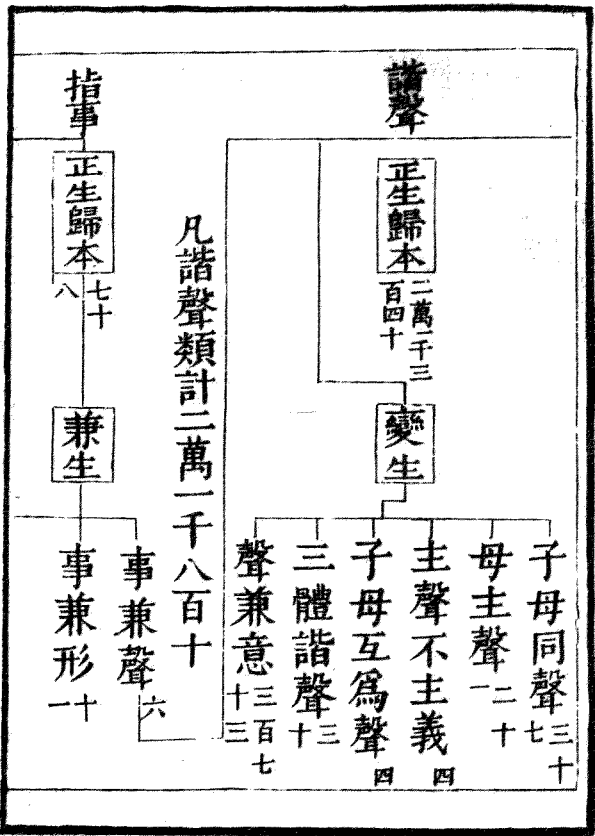 諧聲
正生歸本
二萬一千三
百四十
變生
子母同聲
三十
七
母主聲
二十
一
主聲不主義
四
子母互爲聲
四
三體諧聲
三
十
聲兼意
三百七
十三
凡諧聲類計二萬一千八百十
指事
正生歸本
七十
八
兼生
事兼聲
六
事兼形
十
一